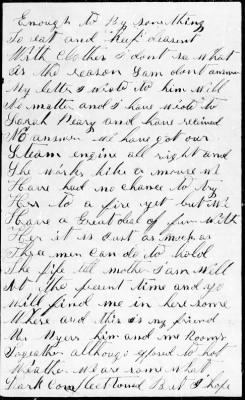 Enough to By something
to eat and keep deasent
With Clothes I dont se What
is the reason Sam dont answer
My letter I wrote to him Will
No matter and I have wrote to
Sarah Peary and have receved
No answer We have got our
Steam engine all right and
She Works like a mouse We
Have had no chance to try
Her to a fire yet but We
Have a Great deal of fun With
Her it is Just as much as
Three men Can do to hold
The pipe tell mother I am Well
At the present time and yo
Will find me in here some
Where and this is my friend
Mr Myers him and me Rooms
Togeather although exposed to hot
Weather We are some What
Dark Complectioned But I hope